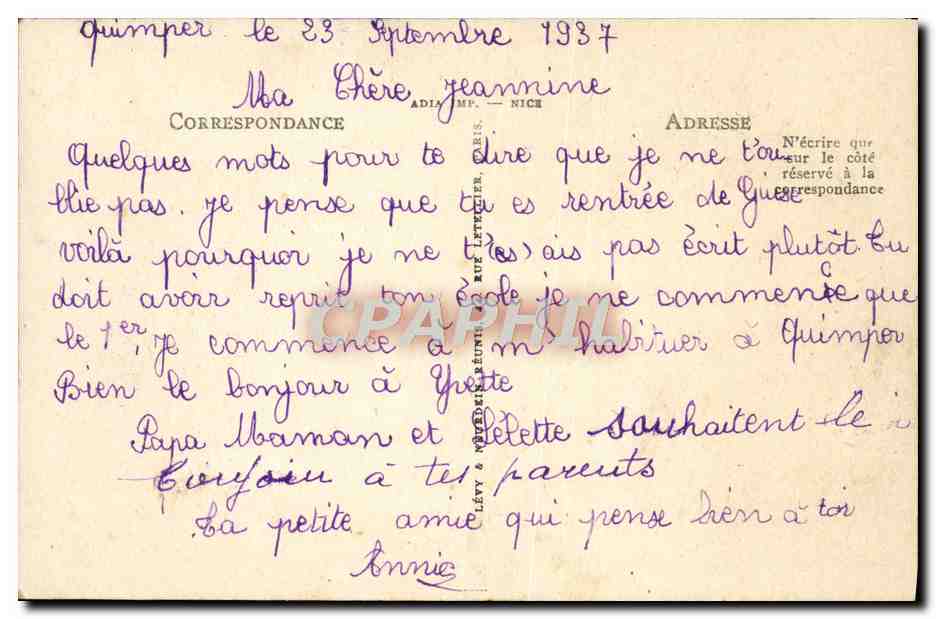 Quimper le 23 Septembre 1937
Ma Chère Jeannine
ADIA IMP. — NICE
CORRESPONDANCE
ADRESSE
N'écrire que
sur le côté
réservé à la
correspondance
Quelques mots pour te dire que je ne t'ou-
blie pas. Je pense que tu es rentrée de Guise
voilà pourquoi je ne t'(es) ais pas écrit plutôt. Tu
doit avoir repris ton école je ne commence que
le 1er, Je commence à m'habituer à Quimper
Bien le bonjour à Yvette
Papa Maman et Lélette souhaitent le
bonjour à tes parents
Ta petite amie qui pense bien à toi
Annic
LÉVY & NEURDEIN RÉUNIS, RUE LETELLIER, PARIS.
CPAPHIL